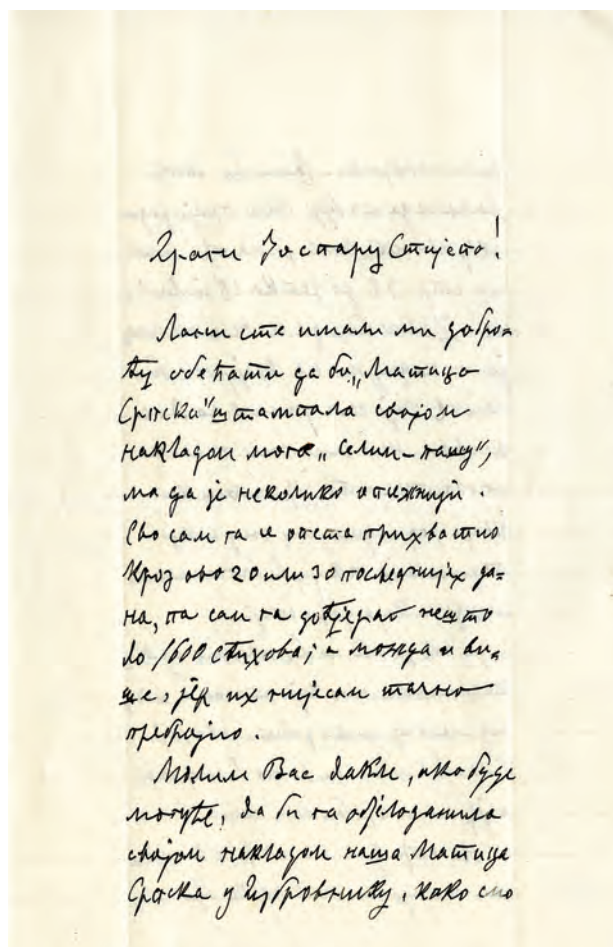 Драги Господару Стијепо!
Лани сте имали ми добро-
ћу обећати да би „Матица
Српска" штампала својом
накладом мога „Селим-пашу",
ма да је неколико опежнији.
Ево сам га и опета прихватио
кроз ово 20 или 30 последњијех да=
на, па сам га доћерао нешто
до 1600 стихова; а можда и ви=
ше, јер их нијесам тачно
пребројио.
Молим Вас дакле, ако буде
могуће, да би га објелоданила
својом накладом наша Матица
Српска у Дубровнику, како смо